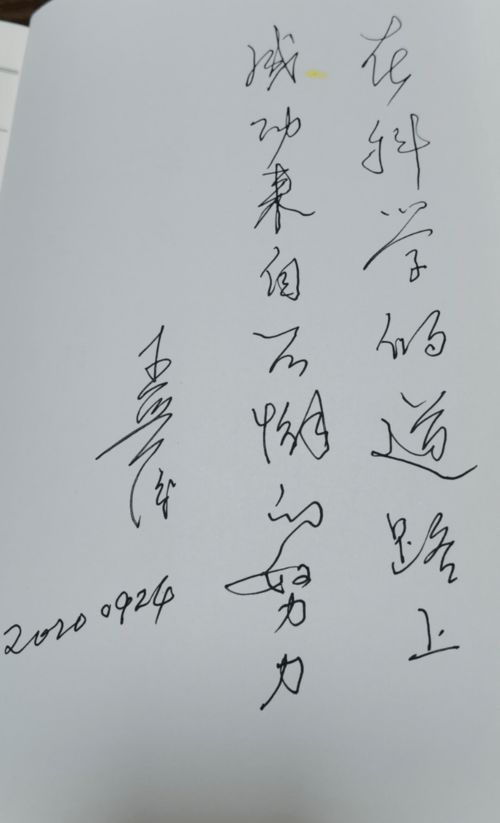 在科学的道路上
成功来自不懈的努力
王
2020 0924